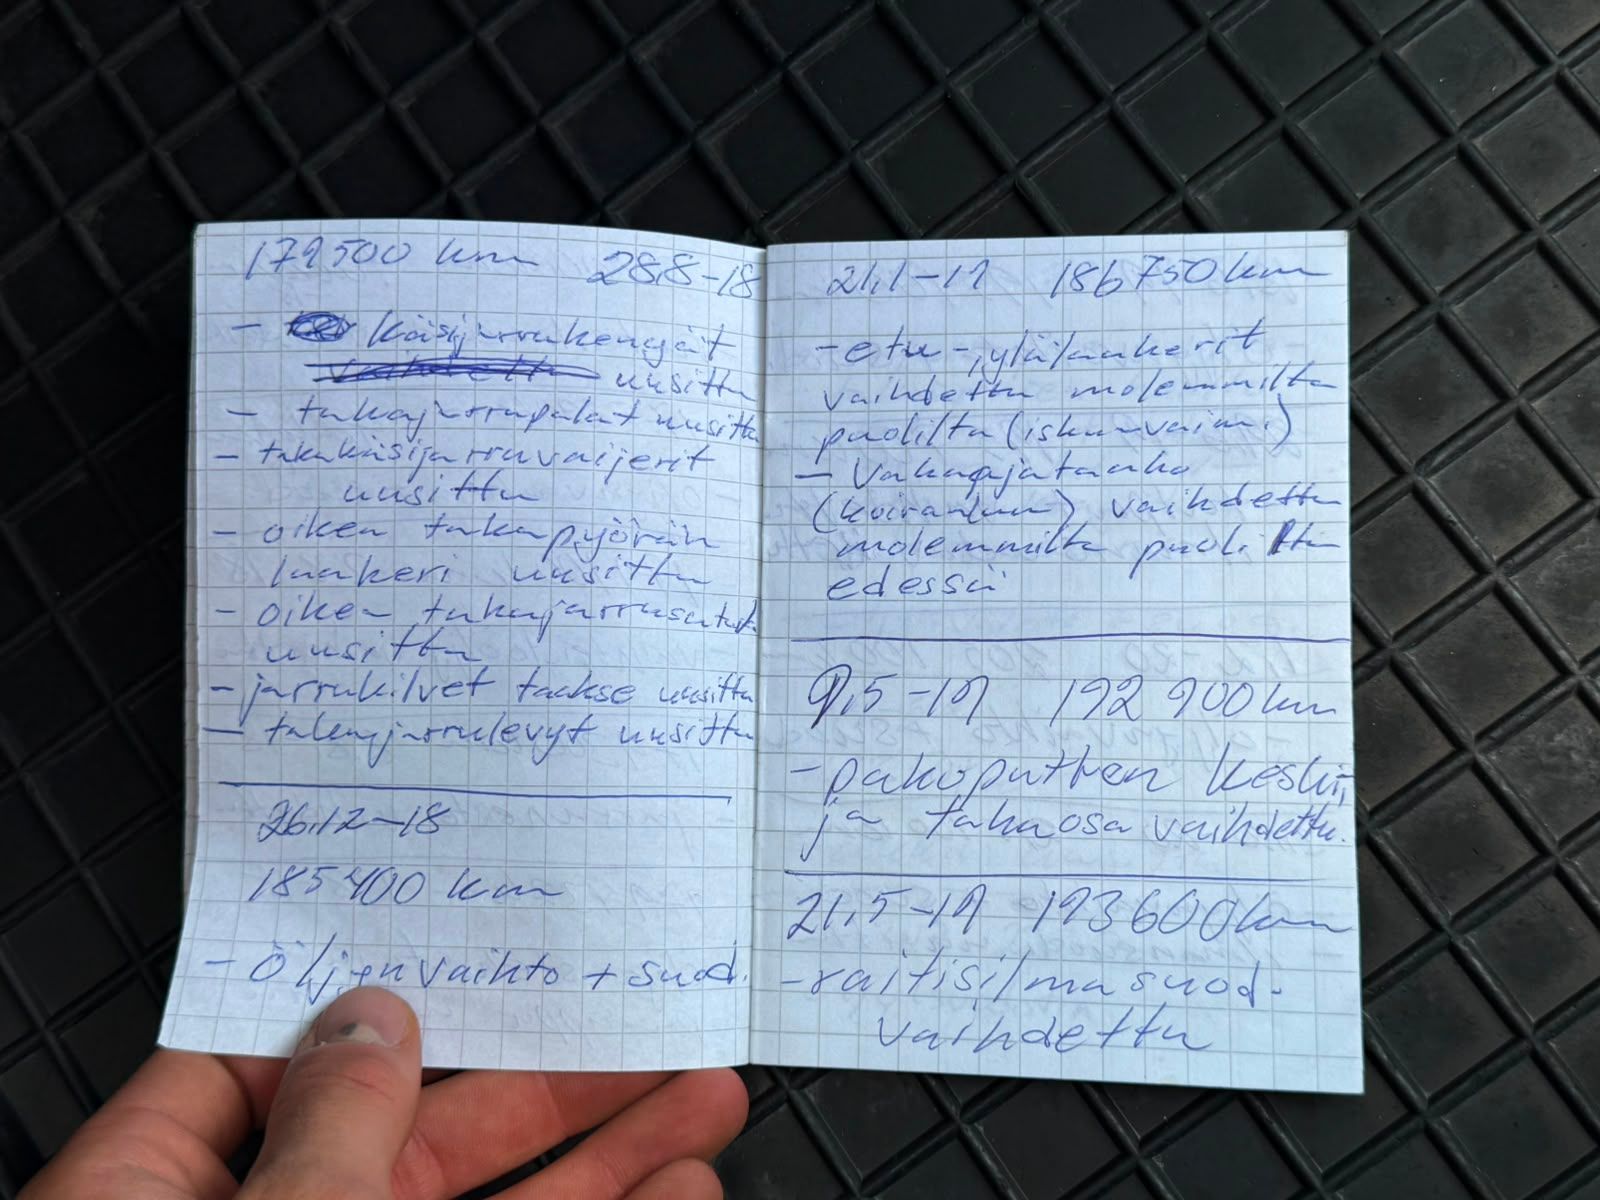 179500 km 28.8-18
- käsijarrukengät
uusittu
- takajarrupalat uusittu
- takakäsijarruvaijerit
uusittu
- oikea takapyörän
laakeri uusittu
- oikea takajarrusatula
uusittu
- jarrukilvet taakse uusittu
- takajarrulevyt uusittu
26.12-18
185400 km
- Öljynvaihto + suod.
21.1-19 186750 km
- etu-, ylälaakerit
vaihdettu molemmilta
puolilta (iskunvaim.)
- Vakaajatanko
(koiranluu) vaihdettu
molemmilta puolilta
edessä
9.5-19 192 900 km
- pakoputken keski-,
ja takaosa vaihdettu.
21.5-19 193600 km
- raitisilmasuod.
vaihdettu